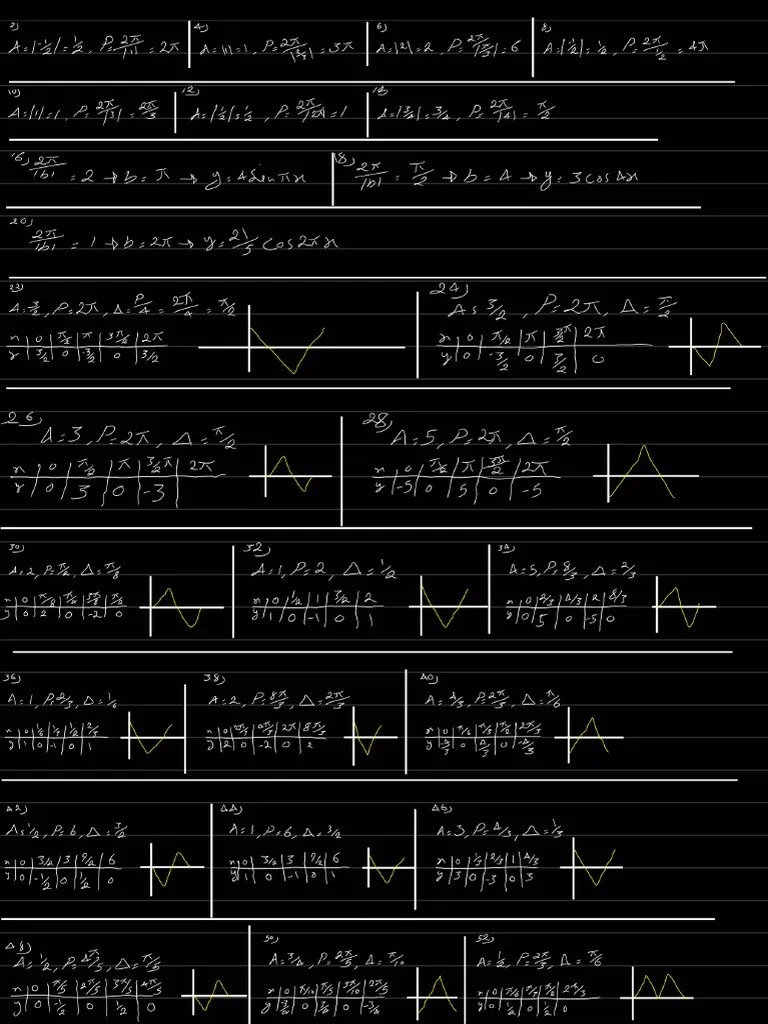 2)
A=|-1/2|=1/2, P=2π/|1|=2π
4)
A=|1|=1, P=2π/|2/3|=3π
6)
A=|2|=2, P=2π/|π/3|=6
8)
A=|1/2|=1/2, P=2π/1/2=4π
10)
A=|1|=1, P=2π/|3|=2π/3
12)
A=|1/2|=1/2, P=2π/|2π|=1
A=|3/4|=3/4, P=2π/|4|=π/2
16) 2π/|b| = 2 → b=π → y=4Sinπx
18) 2π/|b| = π/2 → b=4 → y=3cos4x
20)
2π/|b| = 1 → b=2π → y=21/5 cos2πx
23)
A=3/2, P=2π, Δ=P/4=2π/4=π/2
x|0|π/2|π|3π/2|2π
y|3/2|0|-3/2|0|3/2
24)
A=3/2, P=2π, Δ=π/2
x|0|π/2|π|3/2π|2π
y|0|-3/2|0|3/2|0
26)
A=3, P=2π, Δ=π/2
x|0|π/2|π|3/2π|2π
y|0|3|0|-3|
28)
A=5, P=2π, Δ=π/2
x|0|π/2|π|3π/2|2π
y|-5|0|5|0|-5
30)
A=2, P=π/2, Δ=π/8
x|0|π/8|π/4|3π/8|π/2
y|0|2|0|-2|0
32)
A=1, P=2, Δ=1/2
x|0|1/2|1|3/2|2
y|1|0|-1|0|1
34)
A=5, P=8/3, Δ=2/3
x|0|2/3|4/3|2|8/3
y|0|5|0|-5|0
36)
A=1, P=2/3, Δ=1/6
x|0|1/6|1/3|1/2|2/3
y|1|0|-1|0|1
38)
A=2, P=8π/3, Δ=2π/3
x|0|2π/3|4π/3|2π|8π/3
y|2|0|-2|0|2
40)
A=4/3, P=2π/3, Δ=π/6
x|0|π/6|π/3|π/2|2π/3
y|-4/3|0|4/3|0|-4/3
42)
A=1/2, P=6, Δ=3/2
x|0|3/2|3|9/2|6
y|0|-1/2|0|1/2|0
44)
A=1, P=6, Δ=3/2
x|0|3/2|3|9/2|6
y|1|0|-1|0|1
46)
A=3, P=4/3, Δ=1/3
x|0|1/3|2/3|1|4/3
y|3|0|-3|0|3
48)
A=1/2, P=4π/5, Δ=π/5
x|0|π/5|2π/5|3π/5|4π/5
y|0|-1/2|0|1/2|0
50)
A=3/4, P=2π/5, Δ=π/10
x|0|π/10|π/5|3π/10|2π/5
y|-3/4|0|3/4|0|-3/4
52)
A=1/2, P=2π/3, Δ=π/6
x|0|π/6|π/3|π/2|2π/3
y|0|1/2|0|1/2|0